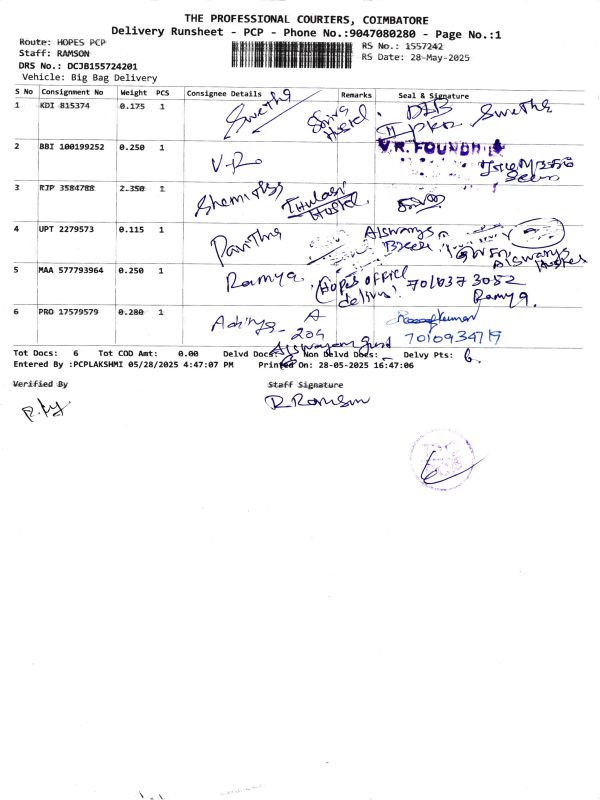 THE PROFESSIONAL COURIERS, COIMBATORE
Delivery Runsheet - PCP - Phone No.:9047080280 - Page No.:1
Route: HOPES PCP
Staff: RAMSON
DRS No.: DCJB155724201
Vehicle: Big Bag Delivery
RS No.: 1557242
RS Date: 28-May-2025
S No Consignment No Weight PCS Consignee Details Remarks Seal & Signature
1 KDI 815374 0.175 1 Swetha Hostel Swetha
2 BBI 100199252 0.250 1 V.R. FOUNDH
3 RJP 3584788 2.350 1 Thulasi Hostel
4 UPT 2279573 0.115 1 Pavithra Aiswarya Hostel
5 MAA 577793964 0.250 1 Ramya Hopes office 7010373052 Ramya.
6 PRO 17579579 0.280 1 A 204 7010934719
Tot Docs: 6 Tot COD Amt: 0.00 Delvd Docs: Non Delvd Docs: Delvy Pts: 6
Entered By :PCPLAKSHMI 05/28/2025 4:47:07 PM Printed On: 28-05-2025 16:47:06
Verified By Staff Signature
R Ramson